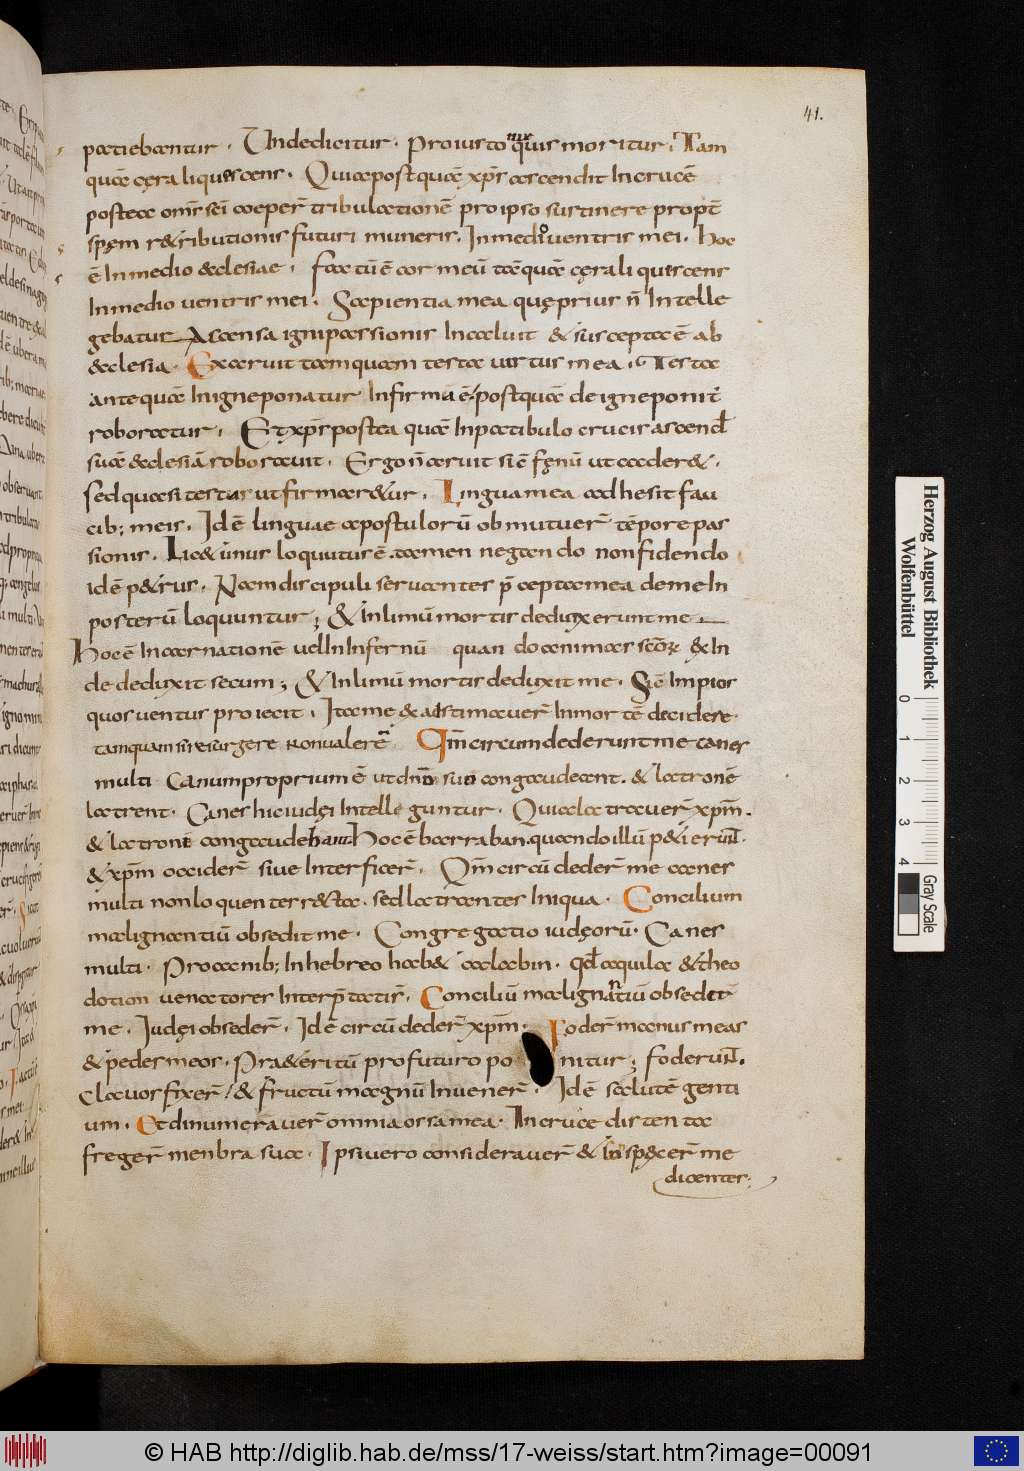 41.
patiebantur. Undedicitur. Proiusto uix quis moritur. Tam
quā cęra liquescens. Quia postquā xp̄s ascendit In crucē
postea om̄s sc̄i coeper̄ tribulationē pro ipso sustinere propt̄
spęm r&ributionis futuri muneris. In medio uentris mei. hoc
ē In medio æclesiae. factū ē cor meū tāquā cęra liquescens
In medio uentris mei. Sapientia mea quę prius n̄ Intelle
gebatur Ascensa igni passionis Incaluit & suscepta ē ab
æclesia. Exaruit tamquam testa uirtus mea. Testa
antequā In igne ponatur Infirma ē. postquā de igne ponit̄
roboratur. Et xp̄s postea quā In patibulo crucis ascend̄
suā æclesiā roborauit. Ergo n̄ aruit sic̄ fęnū ut cader&.
sed quasi testa ut firmar&ur. Lingua mea adhesit fau
cib; meis. Id ē linguae apostulorū obmutuer̄ tēpore pas
sionis. Lic& unus loquutus ē. tamen negando non fidendo
id ē p&rus. Nam discipuli seruantes p̄cepta mea de me In
posterū loquuntur; & In limū mortis deduxerunt me
Hoc ē Incarnationē uel In Infernū quando animas sc̄ōꝝ exIn
de deduxit secum; & In limū mortis deduxit me. Sic̄ Impios
quos uentus proiecit. Ita me & aestimauer̄ In mortē decidere.
tamquam si resurgere non ualerē Qm̄ circumdederunt me canes
multi Canum proprium ē ut dn̄o suo congaudeant. & latronē
latrent. Canes hic iudęi Intelleguntur. Quia latrauer̄ xp̄m.
& latroni congaudebant. Hoc ē barraban. quando illū p&ierunt.
& xp̄m occider̄ siue Interficer̄. Qm̄ circūdeder̄ me canes
multi non loquentes r&ta. sed latrantes Iniqua. Concilium
malignantiū obsedit me. Congregatio iudęorū. Canes
multi. Pro canib; In hebreo hab& calabin. qd̄ aquila & theo
dotion uenatores Interp̄tatis̄. Conciliū malignantiū obsedit
me. Iudęi obseder̄. Id ē circūdeder̄ xp̄m. Foder̄ manus meas
& pedes meos. Pra&eritū pro futuro ponitur; foderunt.
Clauos fixer̄ / & fructū magnū Inuener̄. Id ē salutē genti
um. Et dinumerauer̄ omnia ossa mea. In cruce distenta
freger̄ menbra sua. Ipsi uero considerauer̄ & Inspexer̄ me
dicentes.
Herzog August Bibliothek
Wolfenbüttel
0 1 2 3 4
Gray Scale
© HAB http://diglib.hab.de/mss/17-weiss/start.htm?image=00091